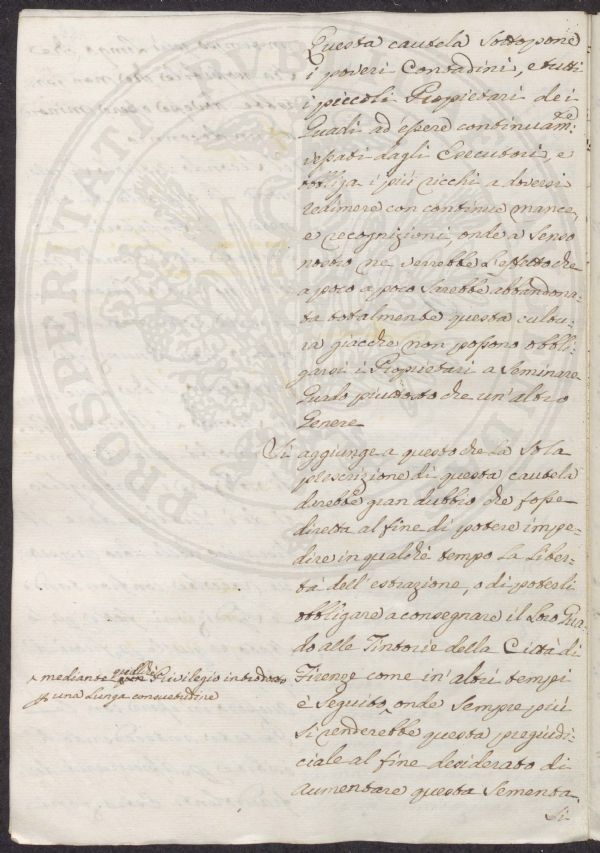 Questa cautela sottopone
i poveri Contadini, e tutti
i piccoli Propietari dei
Guadi ad eßere continuam.te
veßati dagli Esecutori, e
obbliga i più ricchi a doversi
redimere con continue mance,
e recognizioni, onde a senso
nostro ne verrebbe l'effetto che
a poco a poco sarebbe abbandona-
ta totalmente questa cultu-
ra giacche non poßono obbli-
garsi i Propietari a Seminare
Guado piuttosto che un'altro
Genere
Si aggiunge a questo che la sola
prescrizione di questa cautela
darebbe gran dubbio che foße
diretta al fine di potere impe-
dire in qualche tempo la liber-
tà dell'estrazione, o di poterli
obbligare a consegnare il loro Gua-
do alle Tintorie della Città di
Firenze come in'altri tempi
è seguito, onde sempre più
si renderebbe questa pregiudi-
ciale al fine desiderato di
aumentare questa sementa
Si
mediante qualche Privilegio introdotto
p una lunga consuetudine
PROSPERITATI PVB